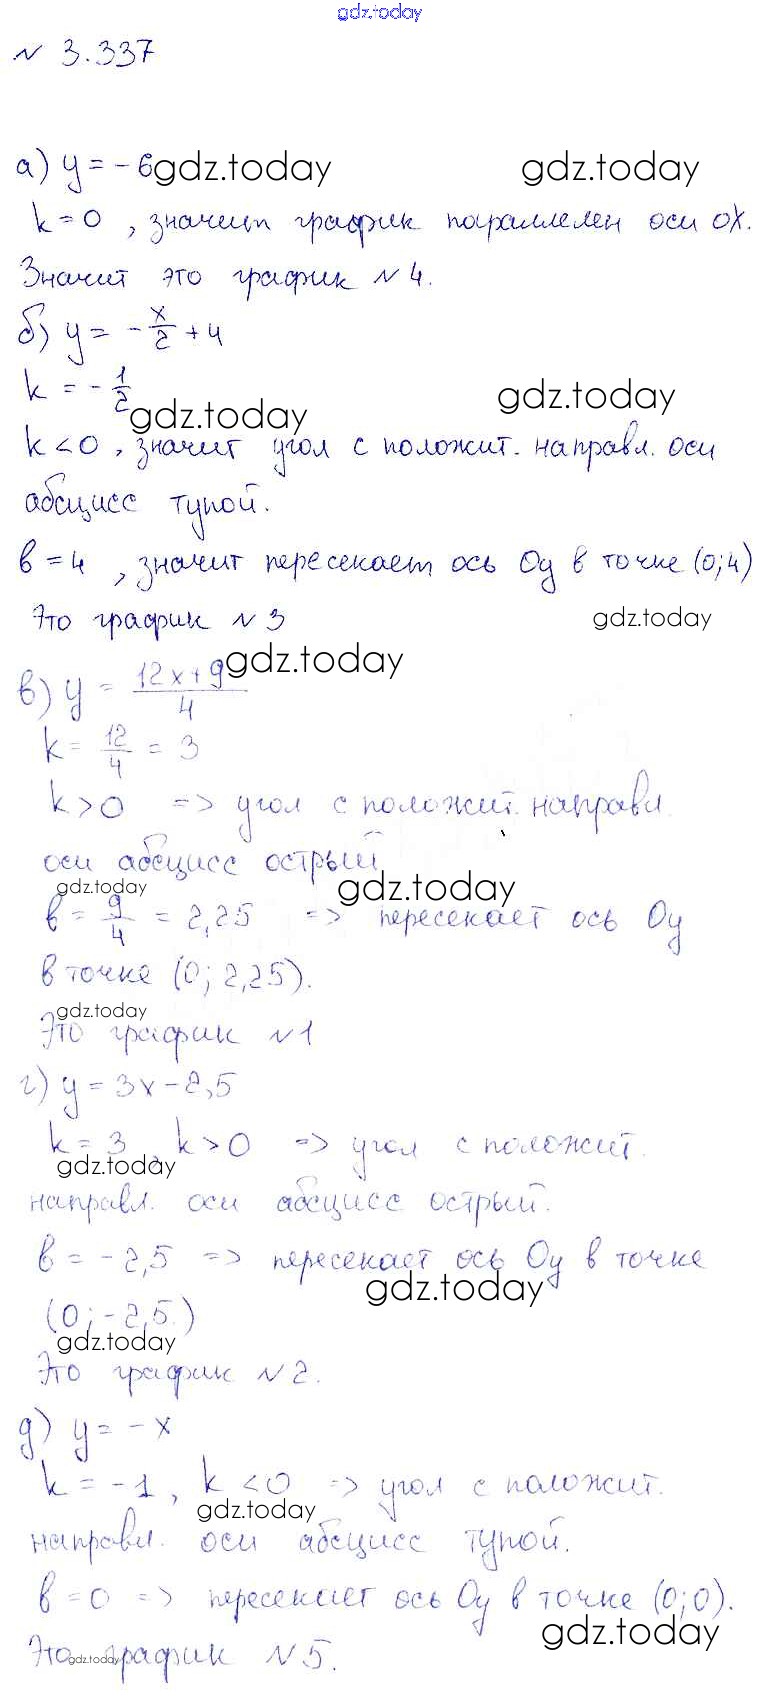 gdz.today
№ 3.337
а) y = -6 gdz.today gdz.today
k = 0 , значит график параллелен оси OX.
Значит это график № 4.
б) y = -x/2 + 4
k = -1/2
gdz.today gdz.today
k < 0 , значит угол с положит. направл. оси
абсцисс тупой.
b = 4 , значит пересекает ось Oy в точке (0; 4)
Это график № 3 gdz.today
gdz.today
в) y = (12x + 9)/4
k = 12/4 = 3
k > 0 => угол с положит. направл.
оси абсцисс острый
gdz.today gdz.today
b = 9/4 = 2,25 => пересекает ось Oy
в точке (0; 2,25).
gdz.today
Это график № 1
г) y = 3x - 2,5
k = 3 , k > 0 => угол с положит.
gdz.today
направл. оси абсцисс острый.
b = -2,5 => пересекает ось Oy в точке
gdz.today
(0; -2,5)
gdz.today
Это график № 2.
д) y = -x
k = -1 , k < 0 => угол с положит.
gdz.today
направл. оси абсцисс тупой.
b = 0 => пересекает ось Oy в точке (0; 0).
gdz.today
Это график № 5.
gdz.today